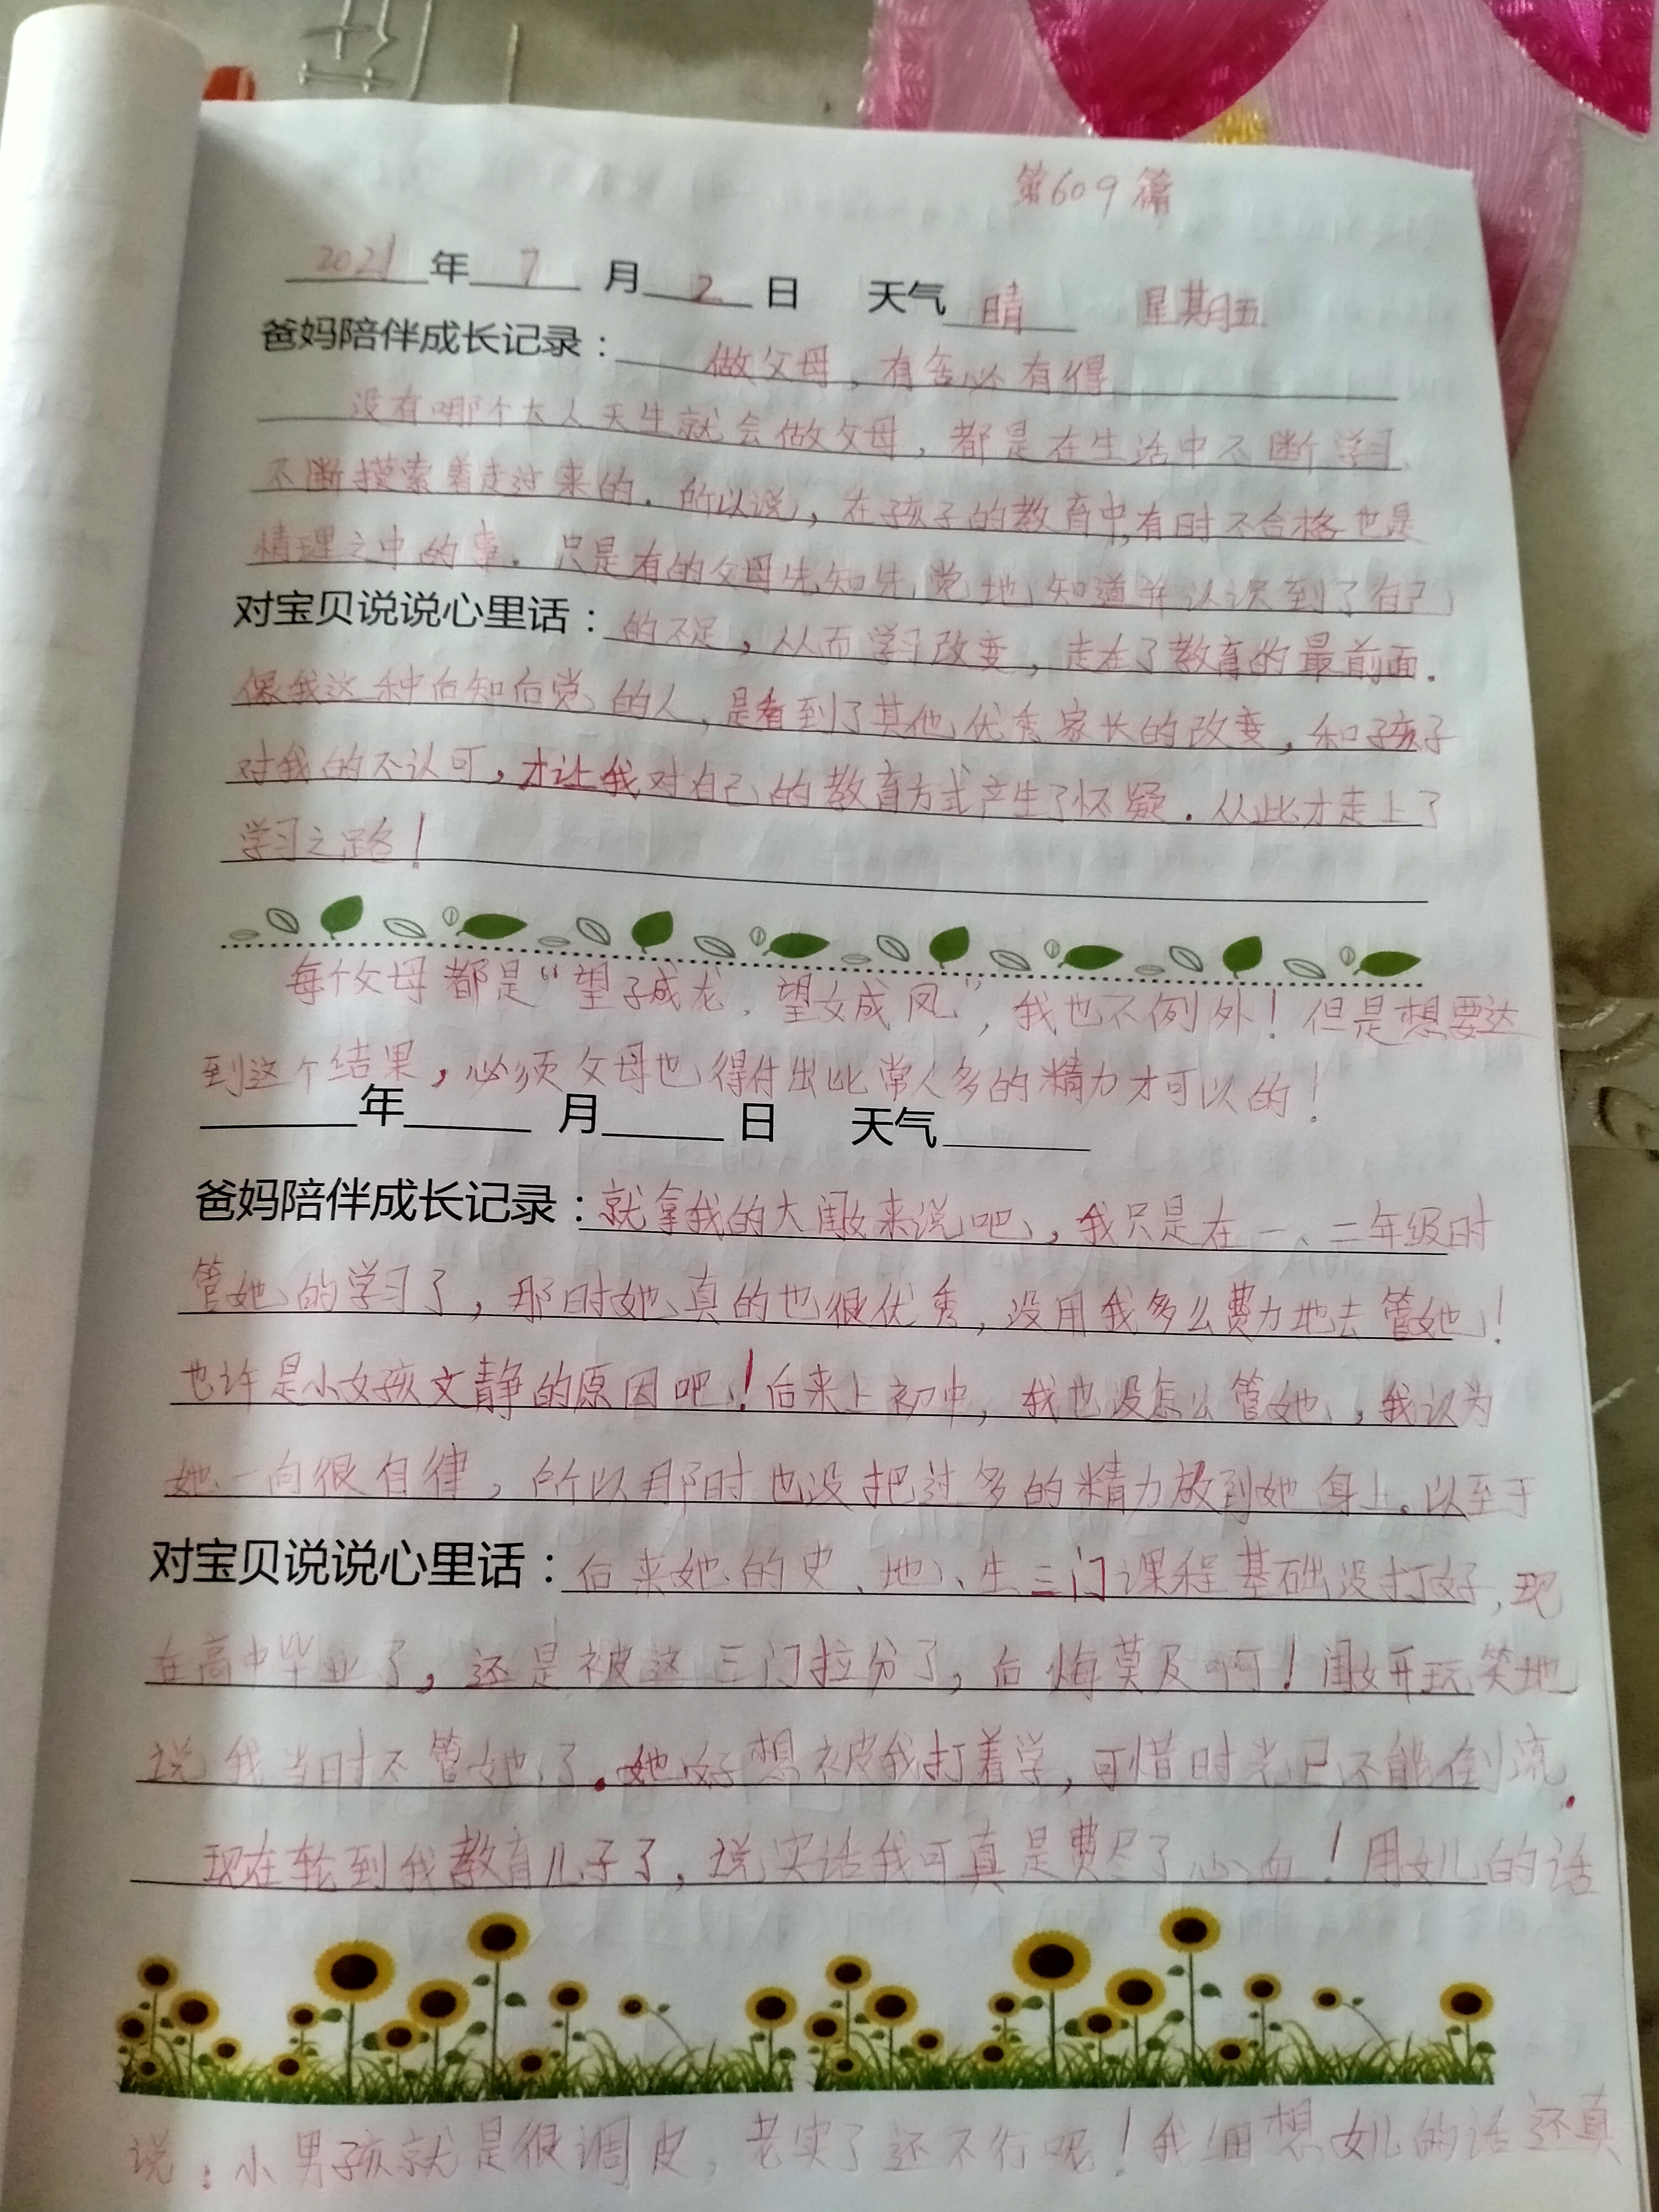 第609篇
2021年 7 月 2 日 天气 晴 星期五
爸妈陪伴成长记录： 做父母，有舍必有得
没有哪个大人天生就会做父母，都是在生活中不断学习
不断摸索着走过来的．所以说，在孩子的教育中，有时不合格也是
情理之中的事．只是有的父母先知先觉地知道并认识到了自己
对宝贝说说心里话：的不足，从而学习改变，走在了教育的最前面．
像我这种后知后觉的人，是看到了其他优秀家长的改变，和孩子
对我的不认可，才让我对自己的教育方式产生了怀疑．从此才走上了
学习之路！
每个父母都是“望子成龙．望女成凤”，我也不例外！但是想要达
到这个结果，必须父母也得付出比常人多的精力才可以的！
年 月 日 天气
爸妈陪伴成长记录：就拿我的大闺女来说吧，我只是在一、二年级时
管她的学习了，那时她真的也很优秀，没用我多么费力地去管她！
也许是小女孩文静的原因吧！后来上初中，我也没怎么管她，我认为
她一向很自律，所以那时也没把过多的精力放到她身上．以至于
对宝贝说说心里话：后来她的史、地、生三门课程基础没打好，现
在高中毕业了，还是被这三门拉分了，后悔莫及啊！闺女开玩笑地
说我当时不管她了．她好想被我打着学，可惜时光已不能倒流．
现在轮到我教育儿子了，说实话我可真是费尽了心血！用女儿的话
说：小男孩就是很调皮，老实了还不行呢！我细想女儿的话还真